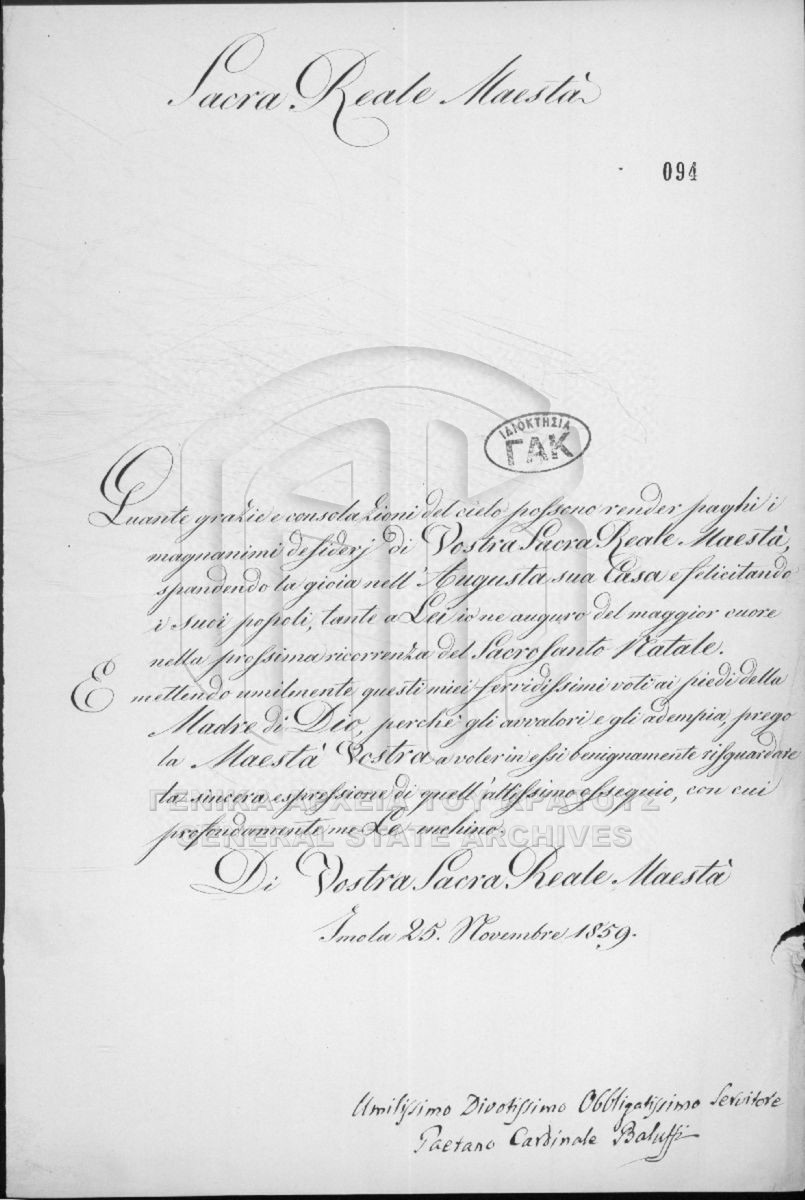 Sacra Reale Maestà
094
ΙΔΙΟΚΤΗΣΙΑ
ΓΑΚ
Quante grazie e consolazioni del cielo possono render paghi i
magnanimi desiderj di Vostra Sacra Reale Maestà,
spandendo la gioia nell'Augusta sua Casa e felicitando
i suoi popoli, tante a Lei io ne auguro del maggior cuore
nella prossima ricorrenza del Sacrosanto Natale.
E mettendo umilmente questi miei fervidissimi voti ai piedi della
Madre di Dio, perchè gli avvalori e gli adempia, prego
la Maestà Vostra a voler in essi benignamente risguardare
la sincera espressione di quell'altissimo ossequio, con cui
ΓΕΝΙΚΑ ΑΡΧΕΙΑ ΤΟΥ ΚΡΑΤΟΥΣ
profondamente me Le inchino.
GENERAL STATE ARCHIVES
Di Vostra Sacra Reale Maestà
Imola 25. Novembre 1859.
Umilissimo Divotissimo Obbligatissimo Servitore
Gaetano Cardinale Baluffi